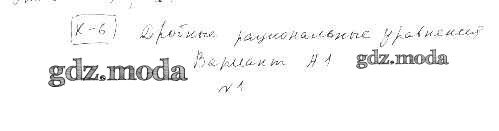 К-6 Дробные рациональные уравнения
gdz.moda Вариант А1 gdz.moda
№1